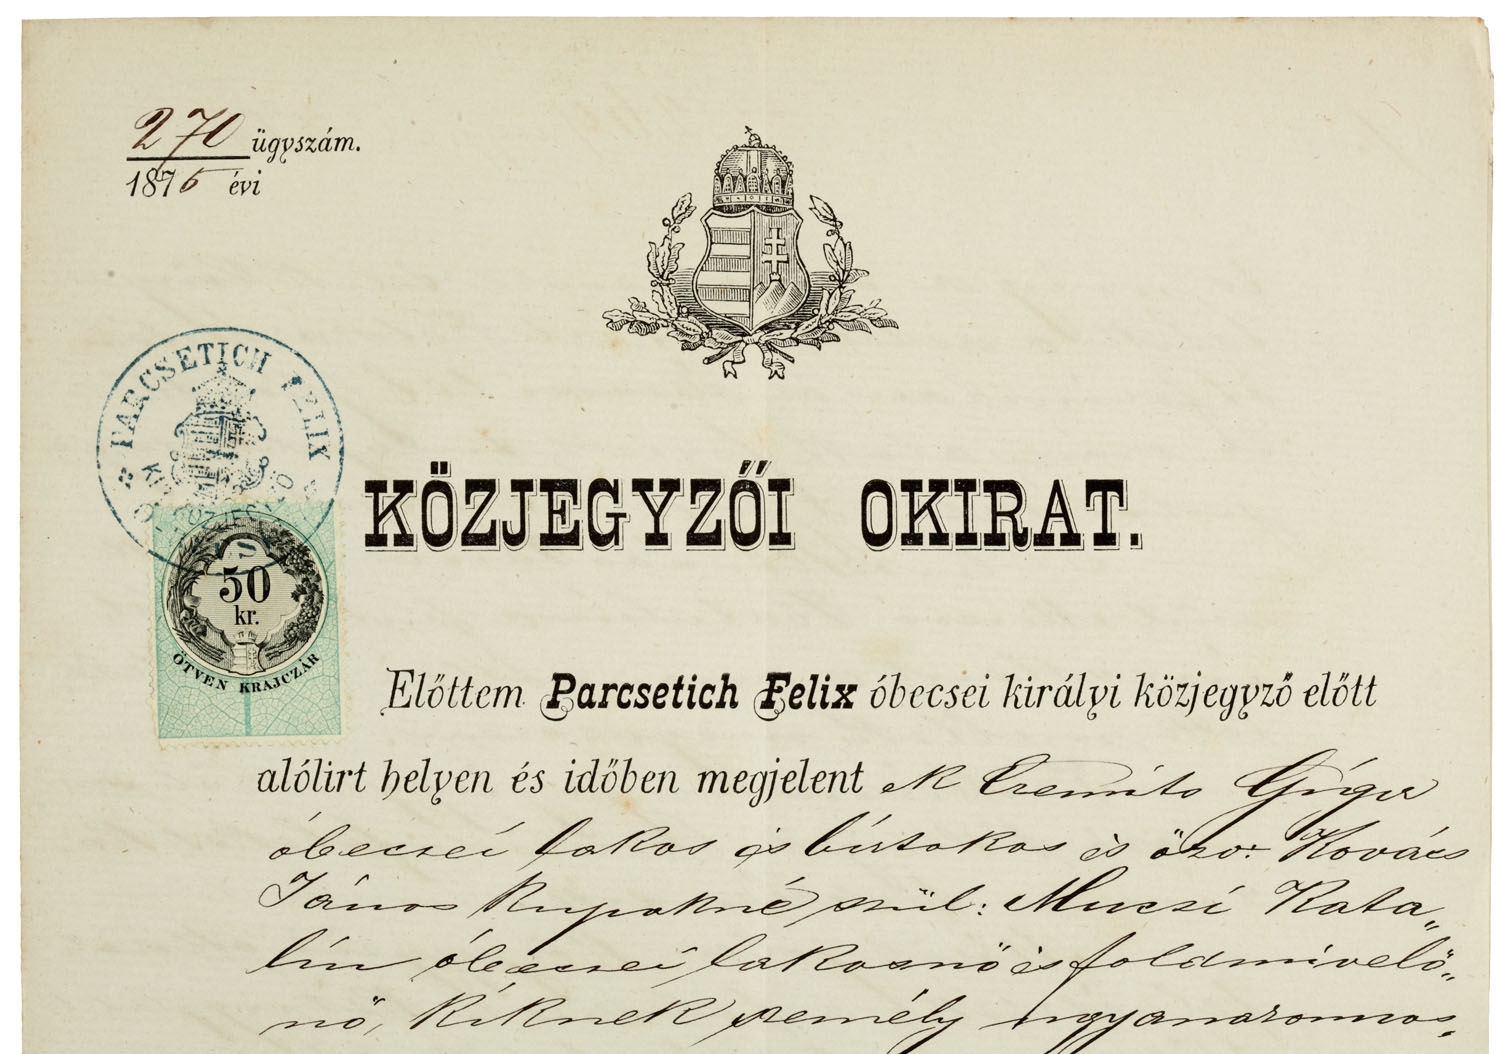 270 ügyszám.
1876 évi
PARCSETICH FELIX
50
kr.
ÖTVEN KRAJCZÁR
KÖZJEGYZŐI OKIRAT.
Előttem Parcsetich Felix óbecsei királyi közjegyző előtt
alólirt helyen és időben megjelent ek
óbecsei lakos és birtokos és özv: Kovács
János szül: Mucsi Kata„
lin óbecsei lakosnő és földmivelő„
nő, kiknek személy ugyanazonnos„